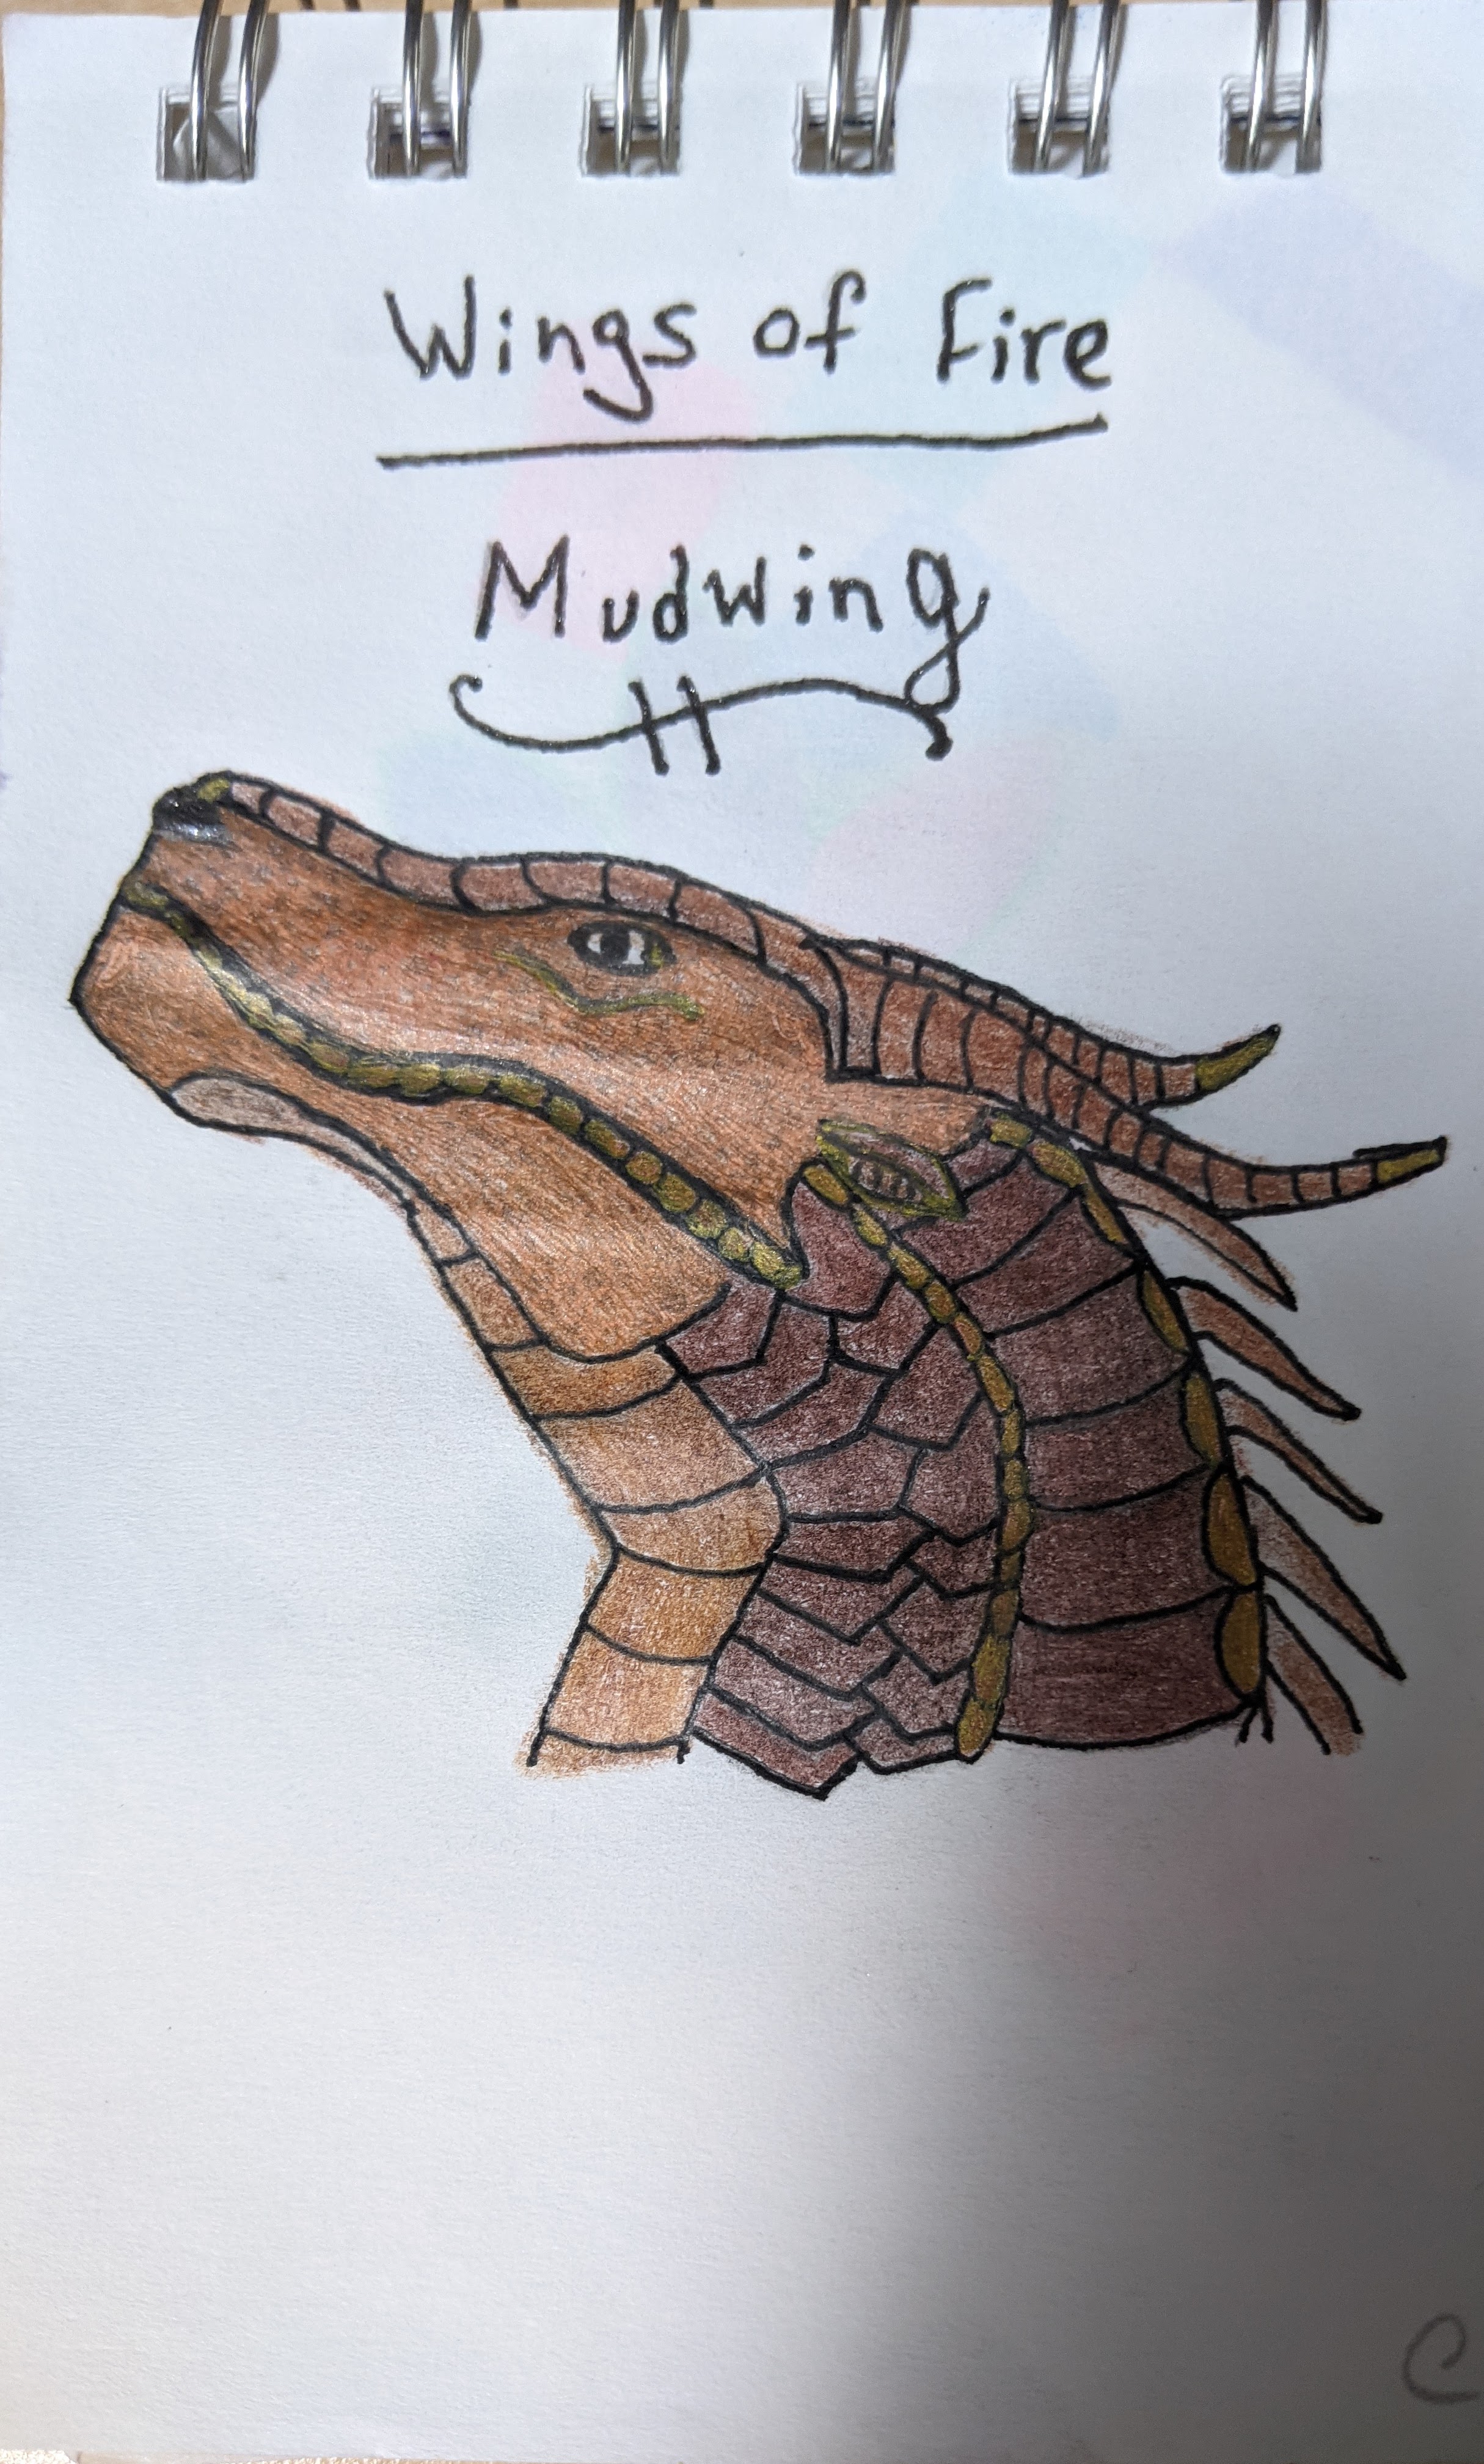 Wings of Fire
Mudwing
C